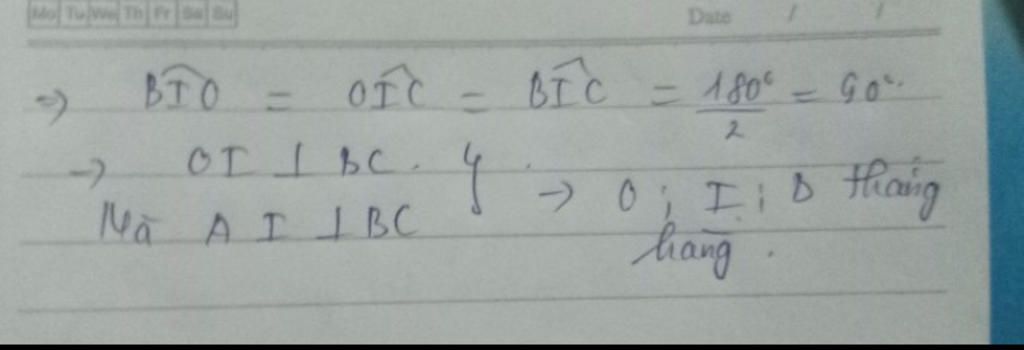 Mo Tu We Th Fr Sa Su
Date / /
=> BÎO = OÎC = BÎC = 180°/2 = 90°.
-> OI ⊥ BC. } -> O ; I ; D thẳng
Mà AI ⊥ BC
hàng.